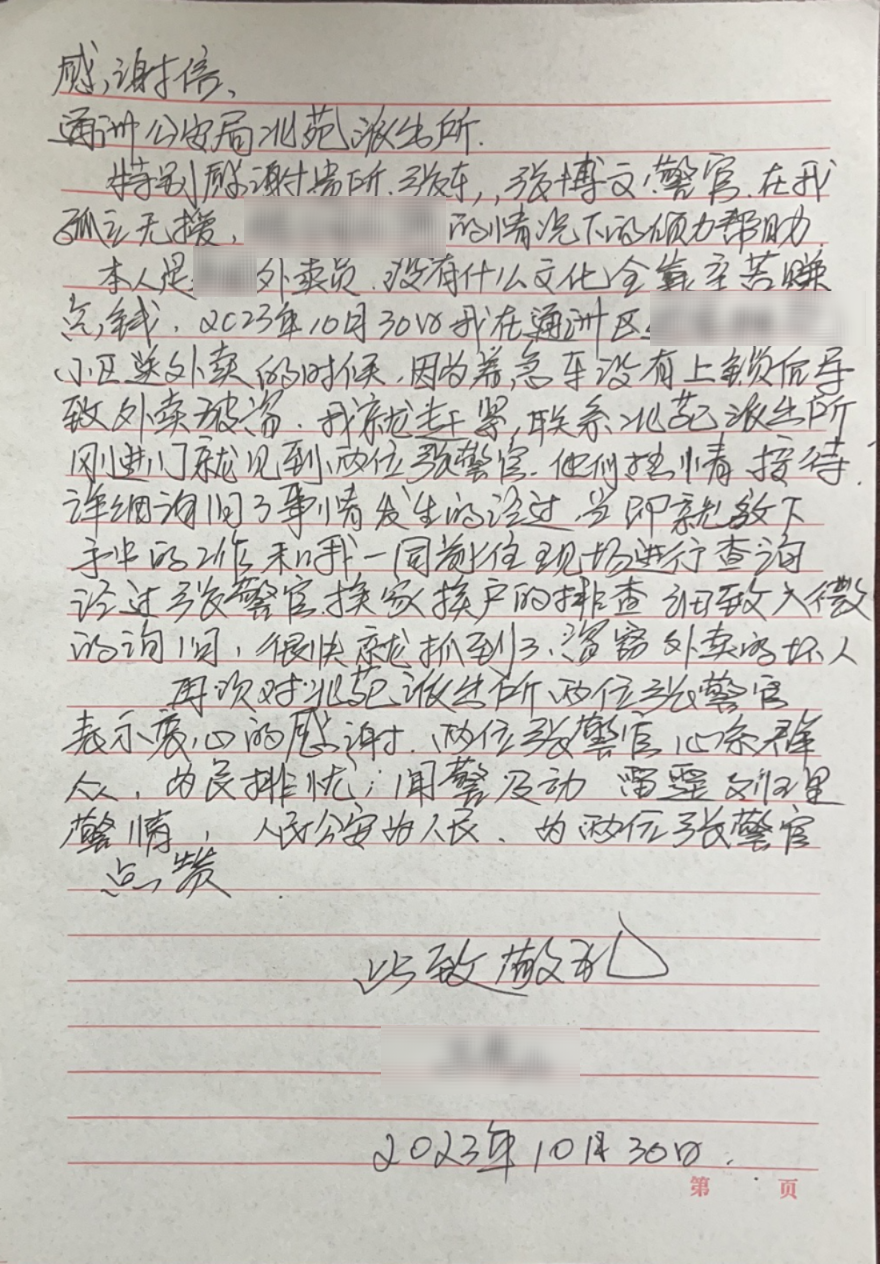 感谢信、
通州公安局北苑派出所.
特别感谢贵所张东,,张博文警官.在我
孤立无援,的情况下的倾力帮助.
本人是外卖员.没有什么文化全靠辛苦赚
点钱.2023年10月30日我在通州区
小区送外卖的时候.因为着急车没有上锁而导
致外卖被盗.我就赶紧,联系北苑派出所
刚进门就见到两位张警官.他们热情接待.
详细询问了事情发生的经过.当即就放下
手中的工作和我一同前往现场进行查询
经过张警官挨家挨户的排查细致入微
的询问,很快就抓到了盗窃外卖的坏人
再次对北苑派出所两位张警官
表示衷心的感谢.两位张警官心系群
众,为民排忧;闻警及动 雷霆处理
警情, 人民公安为人民、为两位张警官
点赞
此致敬礼
2023年10月30日.
第 页